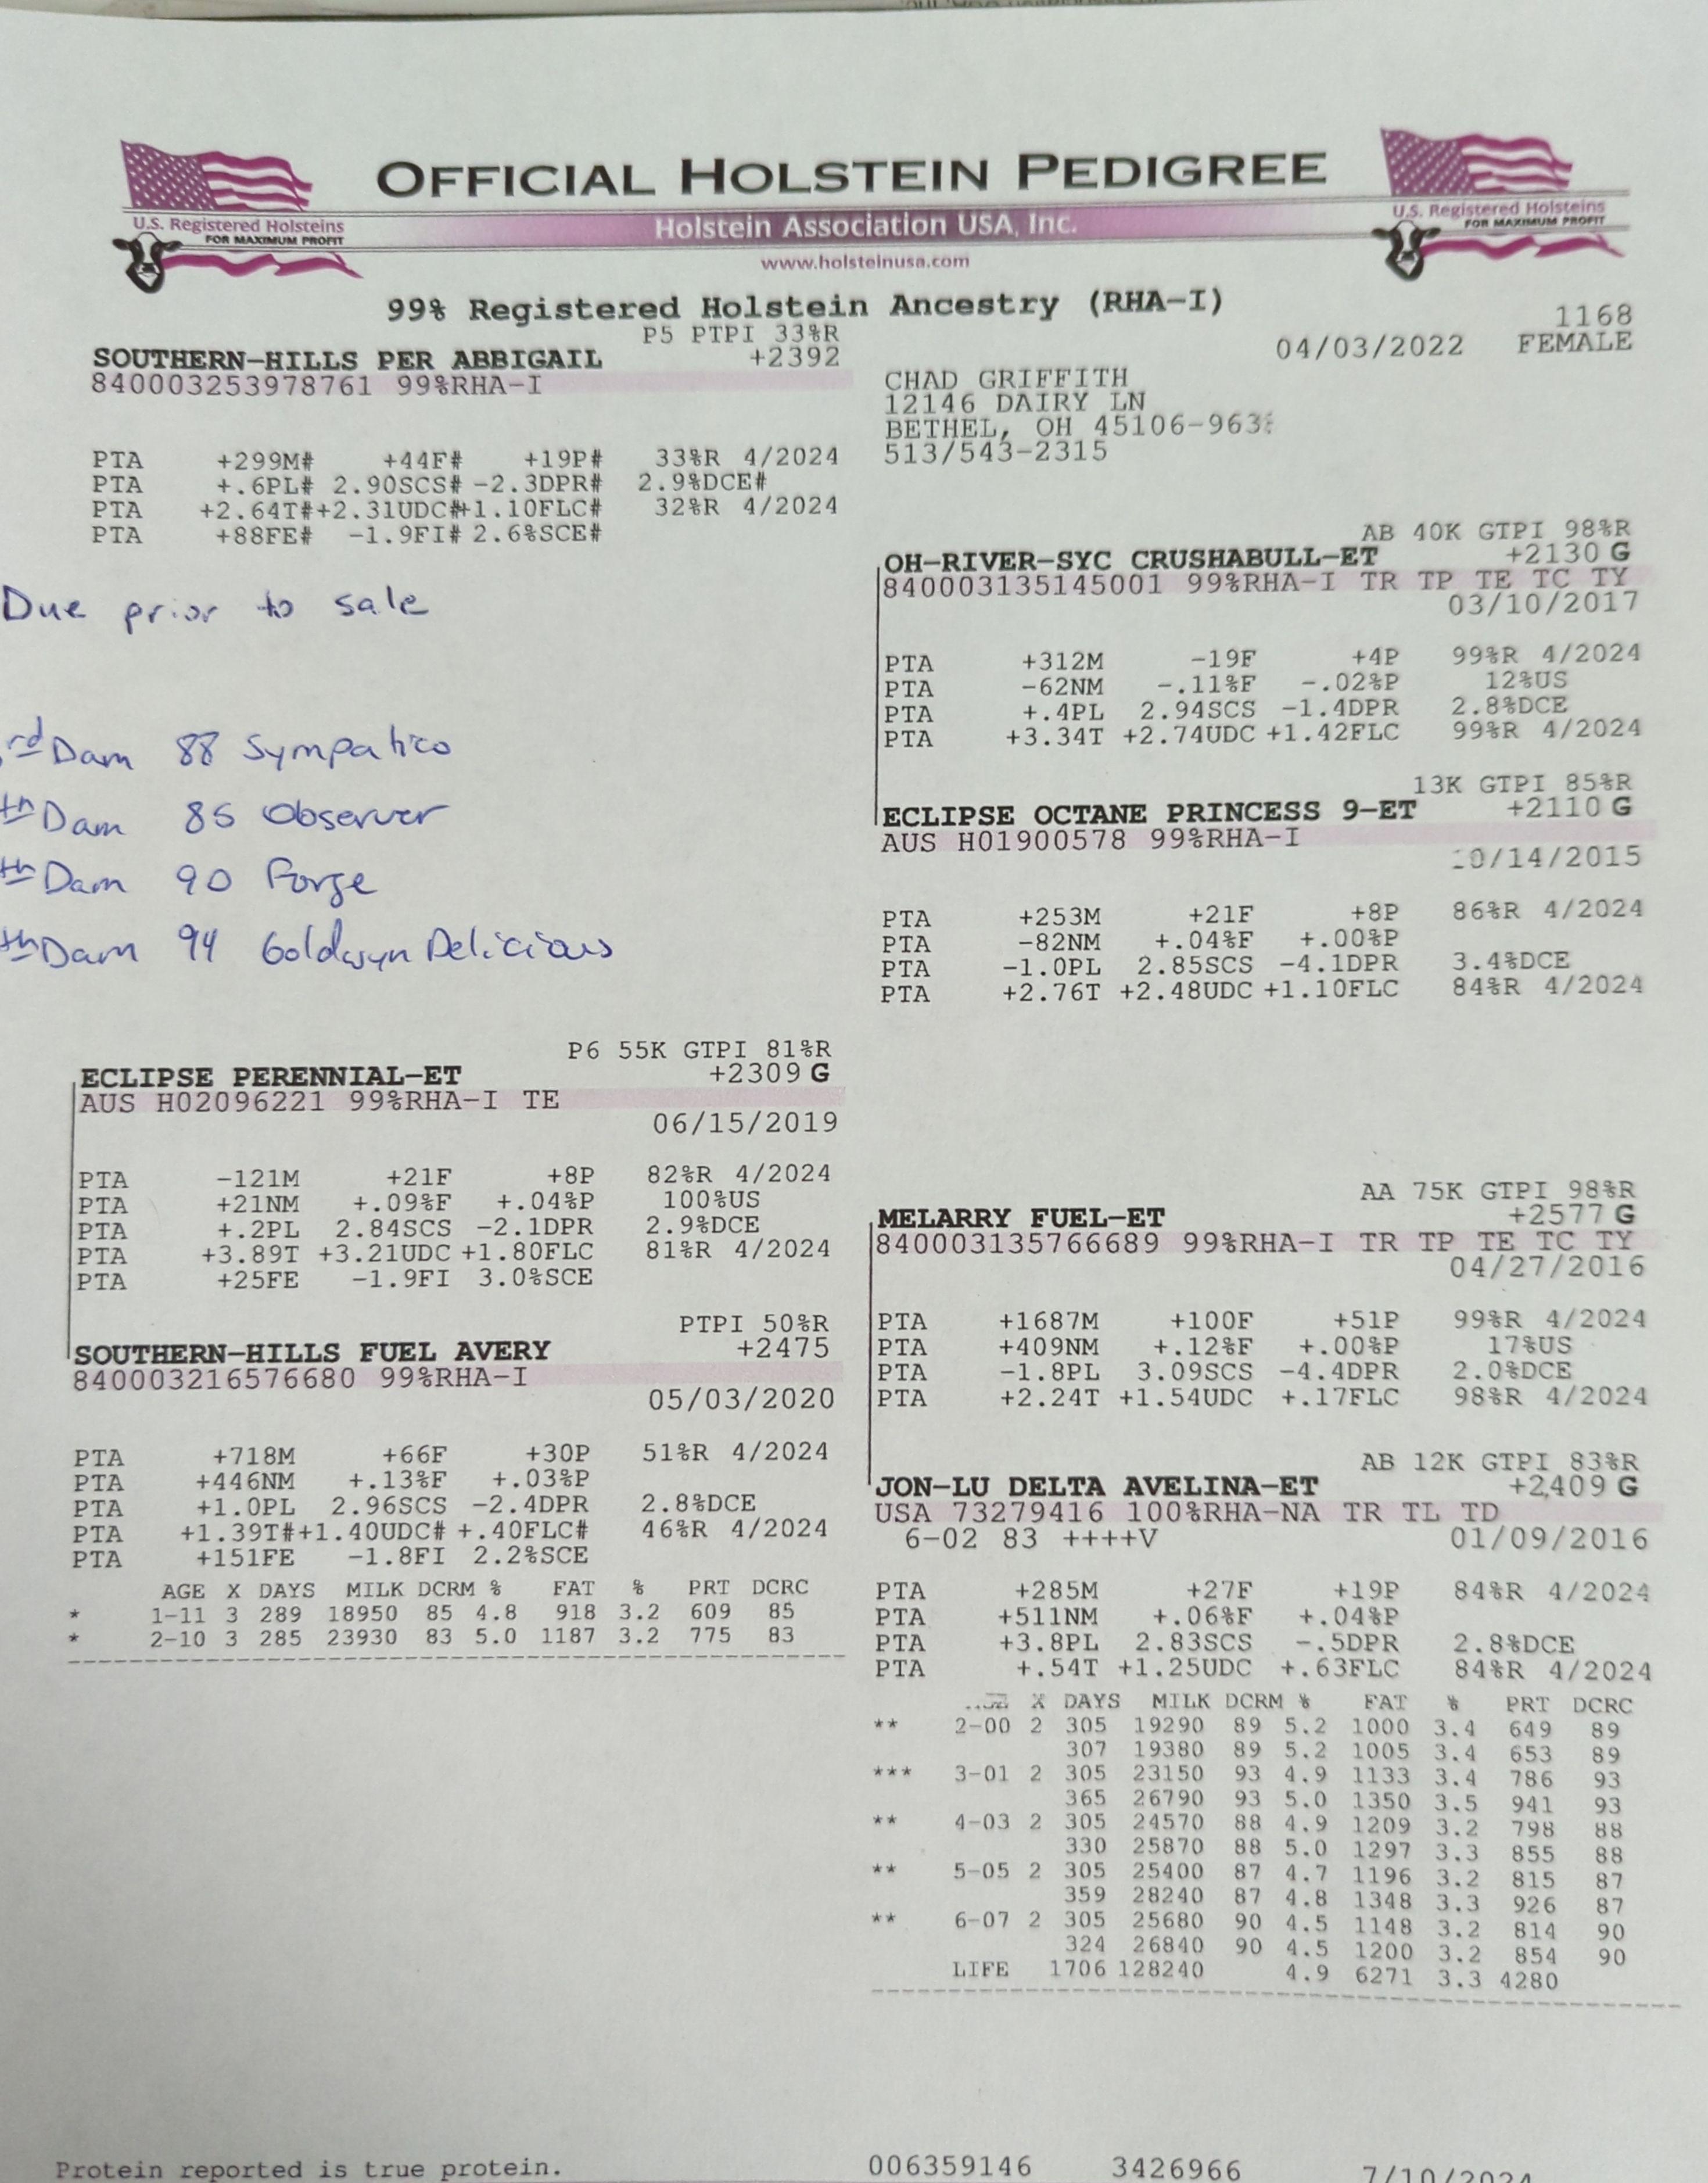 OFFICIAL HOLSTEIN PEDIGREE
U.S. Registered Holsteins
FOR MAXIMUM PROFIT
Holstein Association USA, Inc.
www.holsteinusa.com
U.S. Registered Holsteins
FOR MAXIMUM PROFIT
99% Registered Holstein Ancestry (RHA-I)
P5 PTPI 33%R
SOUTHERN-HILLS PER ABBIGAIL +2392
840003253978761 99%RHA-I
PTA +299M# +44F# +19P# 33%R 4/2024
PTA +.6PL# 2.90SCS# -2.3DPR# 2.9%DCE#
PTA +2.64T#+2.31UDC#+1.10FLC# 32%R 4/2024
PTA +88FE# -1.9FI# 2.6%SCE#
1168
04/03/2022 FEMALE
CHAD GRIFFITH
12146 DAIRY LN
BETHEL, OH 45106-963
513/543-2315
Due prior to sale
rd Dam 88 Sympatico
th Dam 85 Observer
th Dam 90 Forge
th Dam 94 Goldwyn Delicious
AB 40K GTPI 98%R
OH-RIVER-SYC CRUSHABULL-ET +2130 G
840003135145001 99%RHA-I TR TP TE TC TY
03/10/2017
PTA +312M -19F +4P 99%R 4/2024
PTA -62NM -.11%F -.02%P 12%US
PTA +.4PL 2.94SCS -1.4DPR 2.8%DCE
PTA +3.34T +2.74UDC +1.42FLC 99%R 4/2024
13K GTPI 85%R
ECLIPSE OCTANE PRINCESS 9-ET +2110 G
AUS H01900578 99%RHA-I
10/14/2015
PTA +253M +21F +8P 86%R 4/2024
PTA -82NM +.04%F +.00%P
PTA -1.0PL 2.85SCS -4.1DPR 3.4%DCE
PTA +2.76T +2.48UDC +1.10FLC 84%R 4/2024
P6 55K GTPI 81%R
ECLIPSE PERENNIAL-ET +2309 G
AUS H02096221 99%RHA-I TE
06/15/2019
PTA -121M +21F +8P 82%R 4/2024
PTA +21NM +.09%F +.04%P 100%US
PTA +.2PL 2.84SCS -2.1DPR 2.9%DCE
PTA +3.89T +3.21UDC +1.80FLC 81%R 4/2024
PTA +25FE -1.9FI 3.0%SCE
PTPI 50%R
SOUTHERN-HILLS FUEL AVERY +2475
840003216576680 99%RHA-I
05/03/2020
PTA +718M +66F +30P 51%R 4/2024
PTA +446NM +.13%F +.03%P
PTA +1.0PL 2.96SCS -2.4DPR 2.8%DCE
PTA +1.39T#+1.40UDC# +.40FLC# 46%R 4/2024
PTA +151FE -1.8FI 2.2%SCE
AGE X DAYS MILK DCRM % FAT % PRT DCRC
* 1-11 3 289 18950 85 4.8 918 3.2 609 85
* 2-10 3 285 23930 83 5.0 1187 3.2 775 83
AA 75K GTPI 98%R
MELARRY FUEL-ET +2577 G
840003135766689 99%RHA-I TR TP TE TC TY
04/27/2016
PTA +1687M +100F +51P 99%R 4/2024
PTA +409NM +.12%F +.00%P 17%US
PTA -1.8PL 3.09SCS -4.4DPR 2.0%DCE
PTA +2.24T +1.54UDC +.17FLC 98%R 4/2024
AB 12K GTPI 83%R
JON-LU DELTA AVELINA-ET +2409 G
USA 73279416 100%RHA-NA TR TL TD
6-02 83 ++++V 01/09/2016
PTA +285M +27F +19P 84%R 4/2024
PTA +511NM +.06%F +.04%P
PTA +3.8PL 2.83SCS -.5DPR 2.8%DCE
PTA +.54T +1.25UDC +.63FLC 84%R 4/2024
X DAYS MILK DCRM % FAT % PRT DCRC
** 2-00 2 305 19290 89 5.2 1000 3.4 649 89
307 19380 89 5.2 1005 3.4 653 89
*** 3-01 2 305 23150 93 4.9 1133 3.4 786 93
365 26790 93 5.0 1350 3.5 941 93
** 4-03 2 305 24570 88 4.9 1209 3.2 798 88
330 25870 88 5.0 1297 3.3 855 88
** 5-05 2 305 25400 87 4.7 1196 3.2 815 87
359 28240 87 4.8 1348 3.3 926 87
** 6-07 2 305 25680 90 4.5 1148 3.2 814 90
324 26840 90 4.5 1200 3.2 854 90
LIFE 1706 128240 4.9 6271 3.3 4280
Protein reported is true protein. 006359146 3426966 7/10/2024